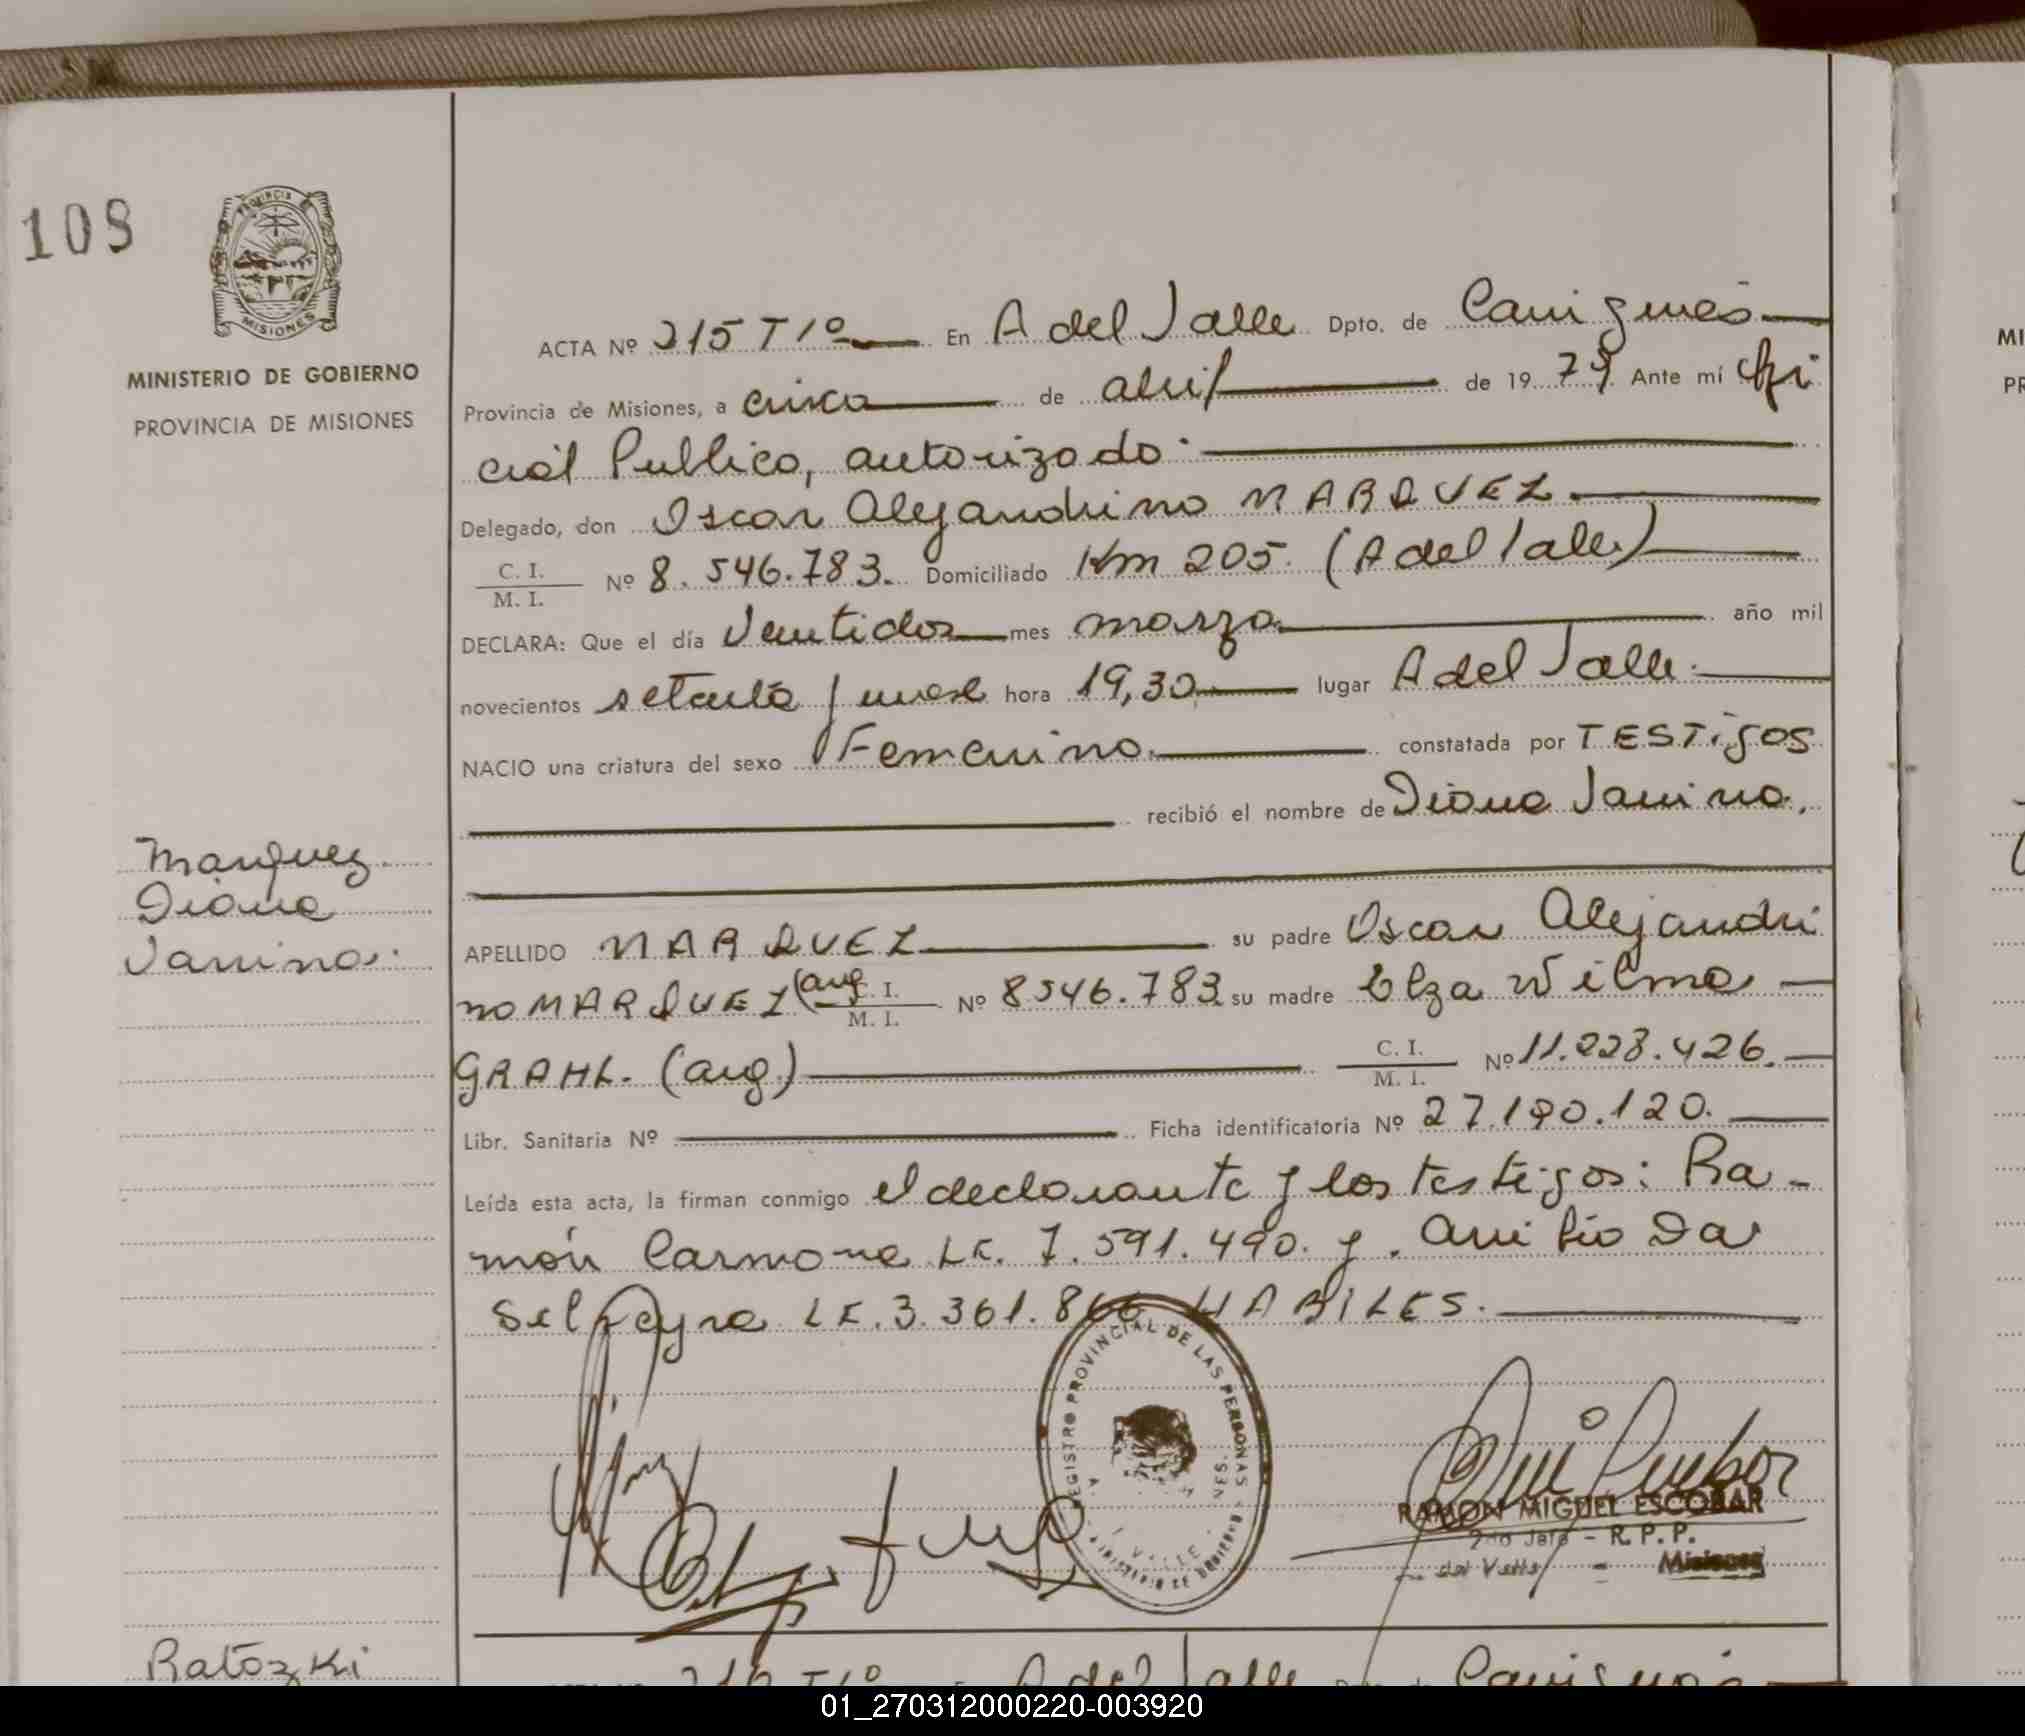 108
PROVINCIA
MISIONES
MINISTERIO DE GOBIERNO
PROVINCIA DE MISIONES
ACTA Nº 215 T 1º En A del Valle Dpto. de Cainguás
Provincia de Misiones, a cinco de abril de 1979 Ante mí Ofi
cial Publico, autorizado.
Delegado, don Oscar Alejandrino MARQUEZ.
C. I.
M. I. Nº 8.546.783. Domiciliado Km 205. (A del Valle)
DECLARA: Que el día Veintidos mes marzo. año mil
novecientos setenta y nueve hora 19,30 lugar A del Valle.
NACIO una criatura del sexo Femenino. constatada por TESTigos
recibió el nombre de Diana Vanina.
Marquez.
Diana
Vanina.
APELLIDO MARQUEZ su padre Oscar Alejandri
no MARQUEZ (arg C. I.
M. I. Nº 8546.783 su madre Elza Wilma
GRAHL. (arg.) C. I.
M. I. Nº 11.228.426.
Libr. Sanitaria Nº Ficha identificatoria Nº 27.190.120.
Leída esta acta, la firman conmigo el declarante y los testigos: Ra-
món Carmona LE. 7.591.490. y. Anibio Da
Silveyra LE. 3.361.866 HABILES.
REGISTRO PROVINCIAL DE LAS PERSONAS
VALLE
RAMON MIGUEL ESCOBAR
2do Jefe - R.P.P.
del Valle - Misiones
Ratozki
216 T1º A del Valle Cainguás
01_270312000220-003920